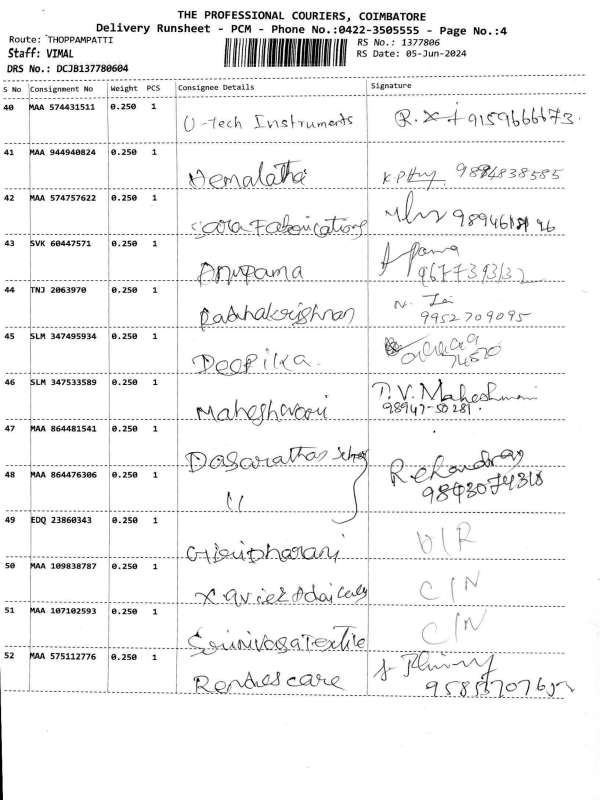 THE PROFESSIONAL COURIERS, COIMBATORE
Delivery Runsheet - PCM - Phone No.:0422-3505555 - Page No.:4
Route: THOPPAMPATTI RS No.: 1377806
Staff: VIMAL RS Date: 05-Jun-2024
DRS No.: DCJB137780604
S No Consignment No Weight PCS Consignee Details Signature
40 MAA 574431511 0.250 1 U-tech Instruments 9159666673
41 MAA 944940824 0.250 1 Hemalatha 9884838585
42 MAA 574757622 0.250 1 Sara Fabrications
43 SVK 60447571 0.250 1 Anupama
44 TNJ 2063970 0.250 1 Radhakrishnan 9952709095
45 SLM 347495934 0.250 1 Deepika
46 SLM 347533589 0.250 1 Maheshwari D.V. Maheshwari
98947-50281.
47 MAA 864481541 0.250 1 Dasarathan
48 MAA 864476306 0.250 1 11
49 EDQ 23860343 0.250 1
50 MAA 109838787 0.250 1 C/N
51 MAA 107102593 0.250 1 Srinivasa Textile C/N
52 MAA 575112776 0.250 1 care